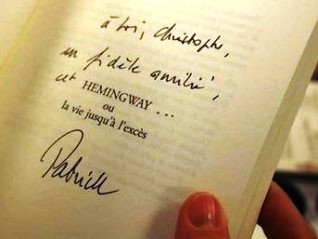 à toi, Christophe,
en fidèle amitié,
cet HEMINGWAY ...
ou
la vie jusqu'à l'excès
Patrick